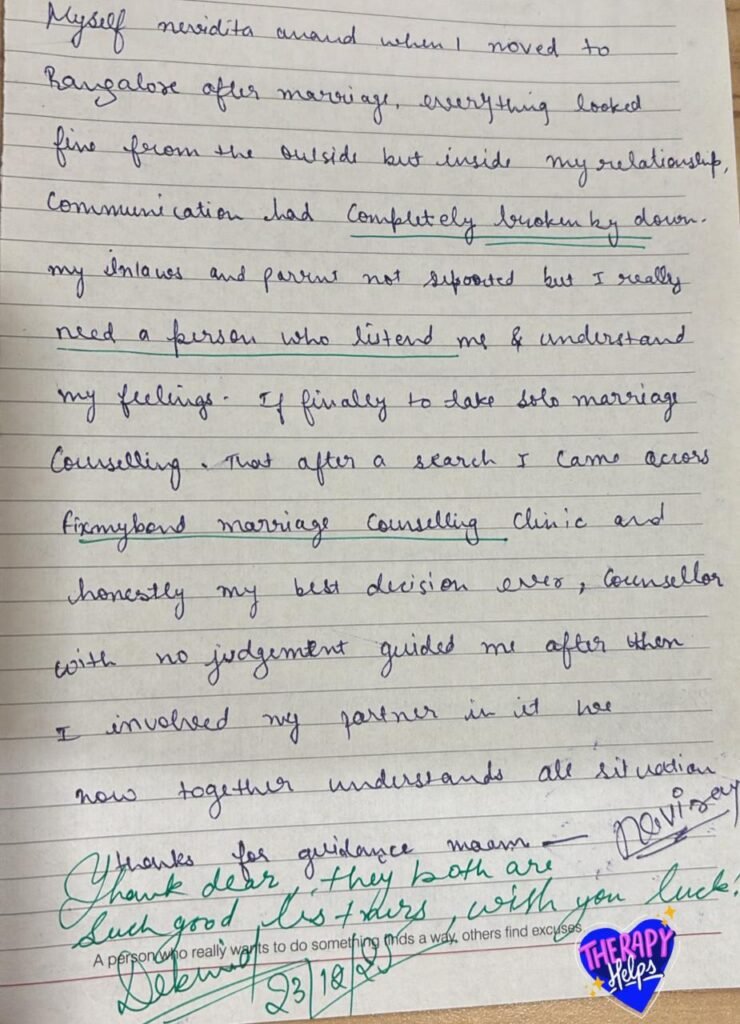 Myself nevidita anand when I noved to
Bangalore after marriage, everything looked
fine from the outside but inside my relationship,
Communication had Completely broken ky down.
my inlaws and parens not sepooted but I really
need a person who listend me & understand
my feelings. If finaley to take solo marriage
Counselling. That after a search I came accors
fixmybond marriage Counselling Clinic and
honestly my best decision ever, Counsellor
with no judgement guided me after then
I involved my partner in it we
now together understands all situation
thanks for guidance maam —
Thank dear, they both are
Such good listners, wish you luck!
A person who really wants to do something finds a way, others find excuses.
THERAPY
Helps